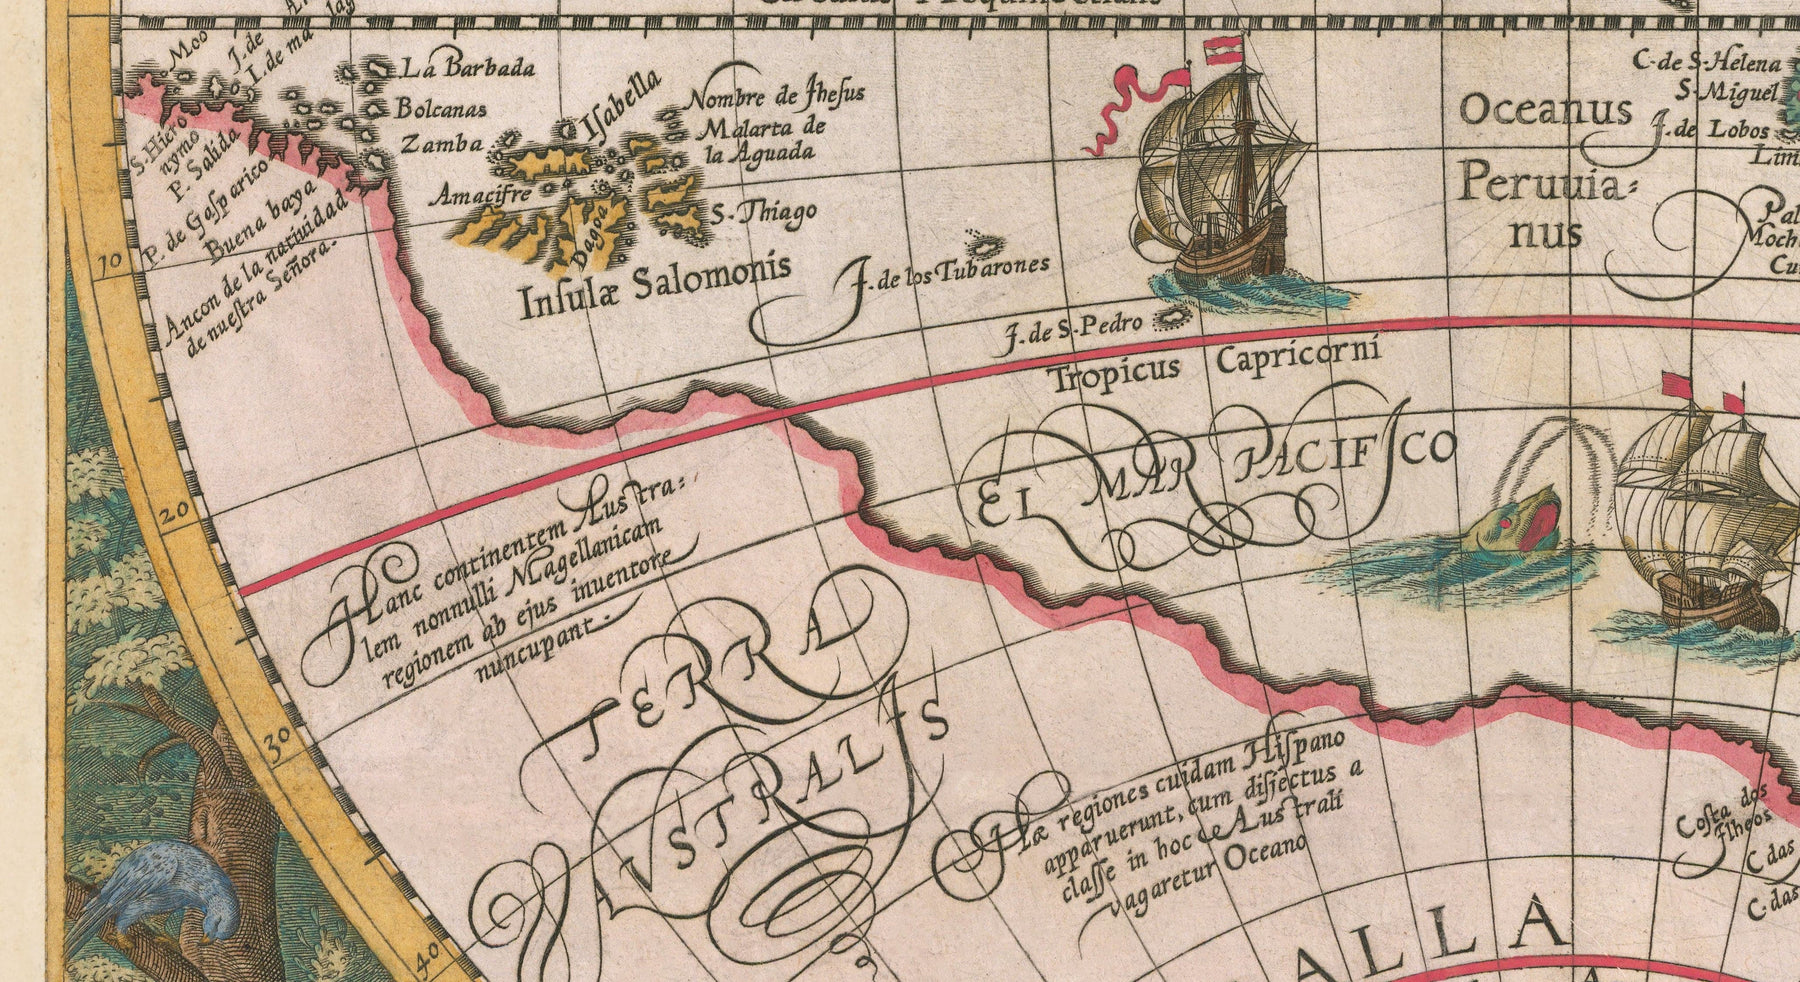 Moo
J. de
I. de ma
La Barbada
Bolcanas
Zamba
Iſabella
Nombre de Jheſus
Malarta de
la Aguada
Amacifre
Dagoa
S. Thiago
Inſulæ Salomonis
J. de los Tubarones
J. de S. Pedro
S. Hiero
nymo
P. Salida
P. de Gaſparico
Buena baya
Ancon de la natiuidad
de nueſtra Señora.
10
20
30
40
Oceanus
Peruuia=
nus
C. de S. Helena
S. Miguel
J. de Lobos
Lim
Pal
Moch
Cu
Tropicus Capricorni
EL MAR PACIFICO
Hanc continentem Auſtra:
lem nonnulli Magellanicam
regionem ab ejus inuentore
nuncupant.
TERRA
AVSTRALIS
Hæ regiones cuidam Hiſpano
apparuerunt, cum diſjectus a
claſſe in hoc Auſtrali
vagaretur Oceano
Coſta dos
C das
C. das
ALLA